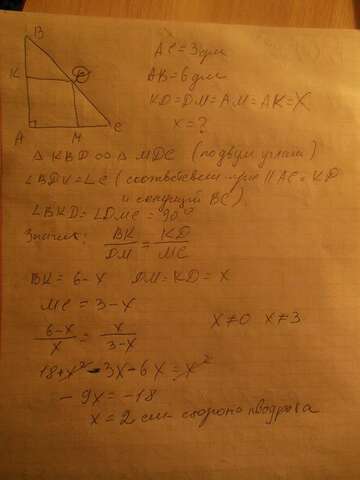 B
K
D
A
M
C
AC = 3 дм
AB = 6 дм
KD = DM = AM = AK = X
x = ?
Δ KBD ∞ Δ MDC (по двум углам)
∠BDK = ∠C (соответствен. при || AC и KD
и секущей BC).
∠BKD = ∠DMC = 90°
Значит: BK/DM = KD/MC
BK = 6 - x DM = KD = x
MC = 3 - x
6-x/x = x/3-x x ≠ 0 x ≠ 3
18 + x² - 3x - 6x = x²
- 9x = -18
x = 2 см сторона квадрата